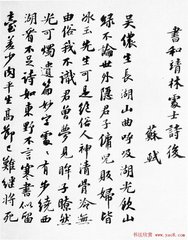 書和靖林處士詩後
蘇軾
吳儂生長湖山曲呼吸湖光飲山
綠不論世外隱君子傭兒販婦皆
冰玉先生可是絕俗人神清骨冷無
由俗我不識君曾夢見眸子瞭然
光可燭遺篇妙字處有步繞西
湖看不足詩如東野不言寒書似留
臺差少肉平生高節已難繼將死
书法欣赏
www.yac8.com